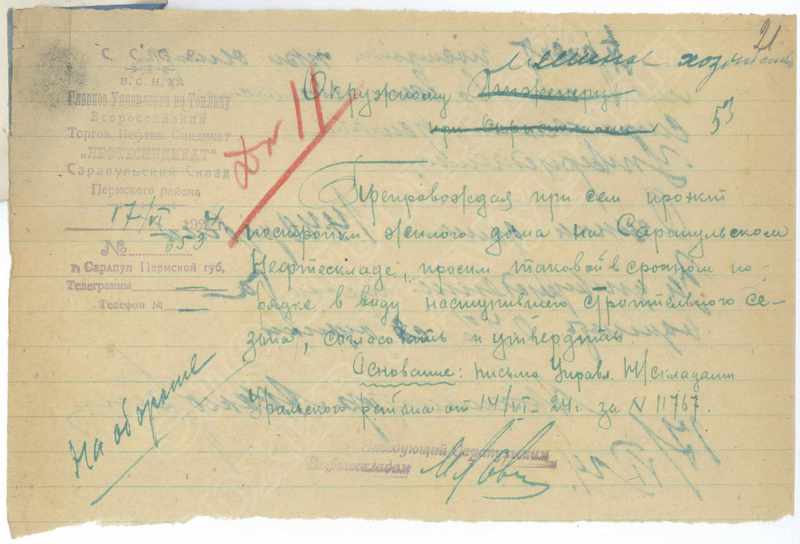 21
В.С.Н.Х.
Главное Управление по Топливу
Всероссийский
Торгов. Нефтян. Синдикат
"НЕФТЕСИНДИКАТ"
Сарапульский Склад
Пермского района
17/VI 1924
№ 653
г. Сарапул Пермской губ.
Телеграммы
Телефон №
Дж 11
Окружному
53
Препровождая при сем проэкт
постройки жилого дома на Сарапульском
Нефтескладе, просим таковой в срочном по-
рядке в виду наступившего строительного се-
зона, согласовать и утвердить
Основание: письмо Управл. Н/складами
Уральского района от 14/VI-24г. за N 11767.
Заведующий Сарапульским
Нефтескладом
На обороте